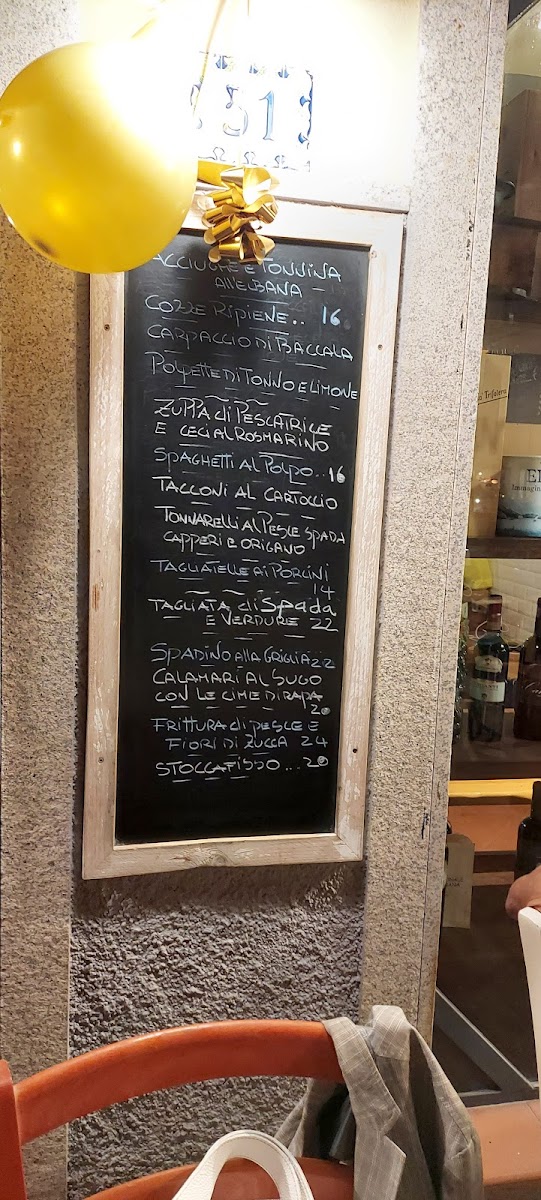 51
ACCIUGHE E TONNINA
ALL'ELBANA
COZZE RIPIENE.. 16
CARPACCIO DI BACCALA
POLPETTE DI TONNO E LIMONE
ZUPPA di PESCATRICE
E CECI AL ROSMARINO
SPAGHETTI AL POLPO.. 16
TACCONI AL CARTOCCIO
TONNARELLI AL PESCE SPADA
CAPPERI e ORIGANO
TAGLIATELLE AI PORCINI
14
TAGLIATA di SPADA
E VERDURE 22
SPADINO alla GRIGLIA 22
CALAMARI AL SUGO
CON LE CIME DI RAPA
20
FRITTURA di PESCE E
FIORI DI ZUCCA 24
STOCCAFISSO ... 20